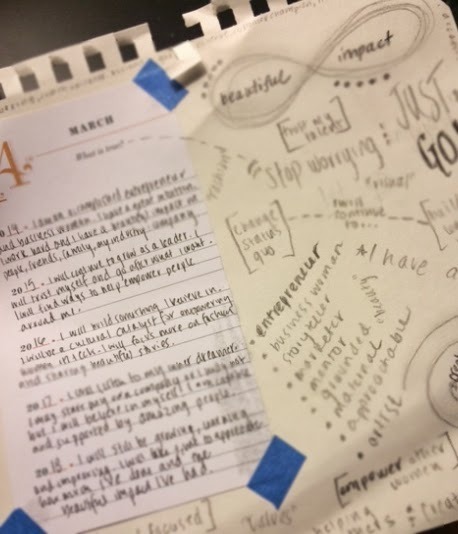 MARCH
What is true?
2014 - I am an established entrepreneur
and business woman. I have a great intuition.
I work hard and I have a beautiful impact on
people, friends, family, my industry, company.
2015 - I will continue to grow as a leader. I
will trust myself and go after what I want.
I will find ways to help empower people
around me.
2016 - I will build something I believe in.
I will be a cultural catalyst for empowering
women in tech. I will focus more on fashion
and sharing beautiful stories.
2017 - I will listen to my inner dreamer.
I may start my own company or I may not
but I will believe in myself. I am capable
and supported by amazing people.
2018 - I will still be growing, learning
and improving. I will take time to appreciate
how much I've done and the
beautiful impact I've had.
beautiful
impact
[trust my
talents]
"stop worrying"
JUST
GO
"visual"
[change
status
quo]
will
continue
to...
*I have a
• entrepreneur
• business woman
• storyteller
• marketer
• mentor
• grounded
• maternal
• approachable
• artist
[empower other
women]
focused]
helping